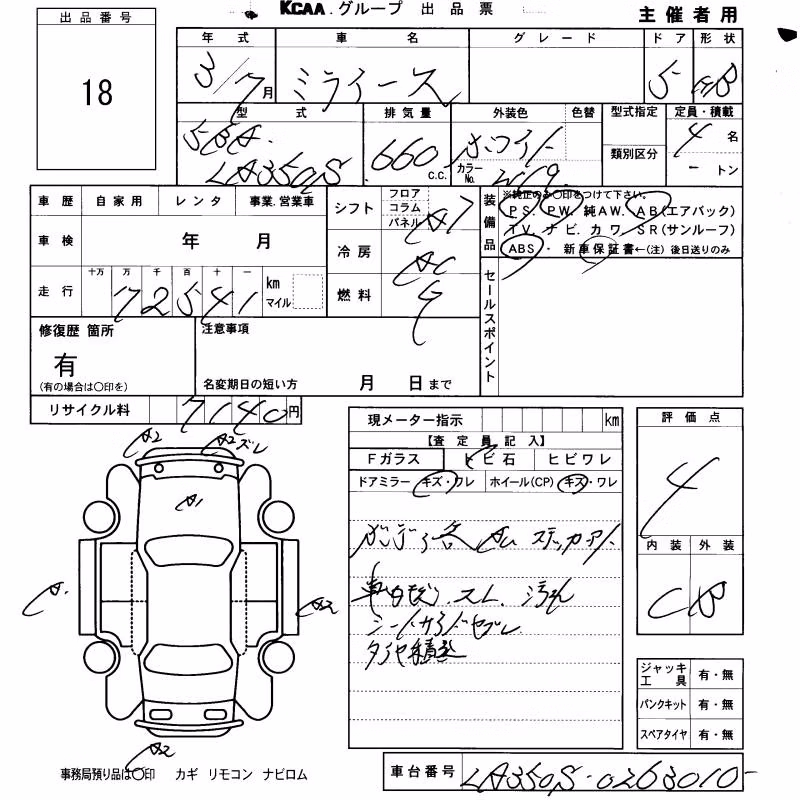 KCAA.グループ 出品票
主催者用
出品番号
18
年式 車名 グレード ドア 形状
3/7月 ミライース 5 HB
型式 排気量 外装色 色替 型式指定 定員・積載
5BA- 660 c.c. ホワイト 4名
LA350S カラーNo. W19 類別区分 - トン
車歴 自家用 レンタ 事業.営業車
シフト フロア コラム パネル AT
装備品 ※純正のみ○印をつけて下さい。
PS. PW. 純AW. AB(エアバック)
TV. ナビ. カワ. SR(サンルーフ)
ABS・ 新車保証書←(注)後日送りのみ
車検 年 月
冷房 AC
走行 十万 万 千 百 十 一
72541 km マイル
燃料 G
セールスポイント
修復歴 箇所
有
(有の場合は○印を)
注意事項
名変期日の短い方 月 日まで
リサイクル料 7140円
現メーター指示 km
【査定員記入】
Fガラス トビ石 ヒビワレ
ドアミラー キズ・ワレ ホイール(CP) キズ・ワレ
評価点
4
内装 外装
C B
A2 A2 ズレ
A1
A1 A2
A2
ステッカーアト
スレ. 汚れ
タイヤ積込
ジャッキ工具 有・無
パンクキット 有・無
スペアタイヤ 有・無
事務局預り品は○印 カギ リモコン ナビロム
車台番号 LA350S-0263010-